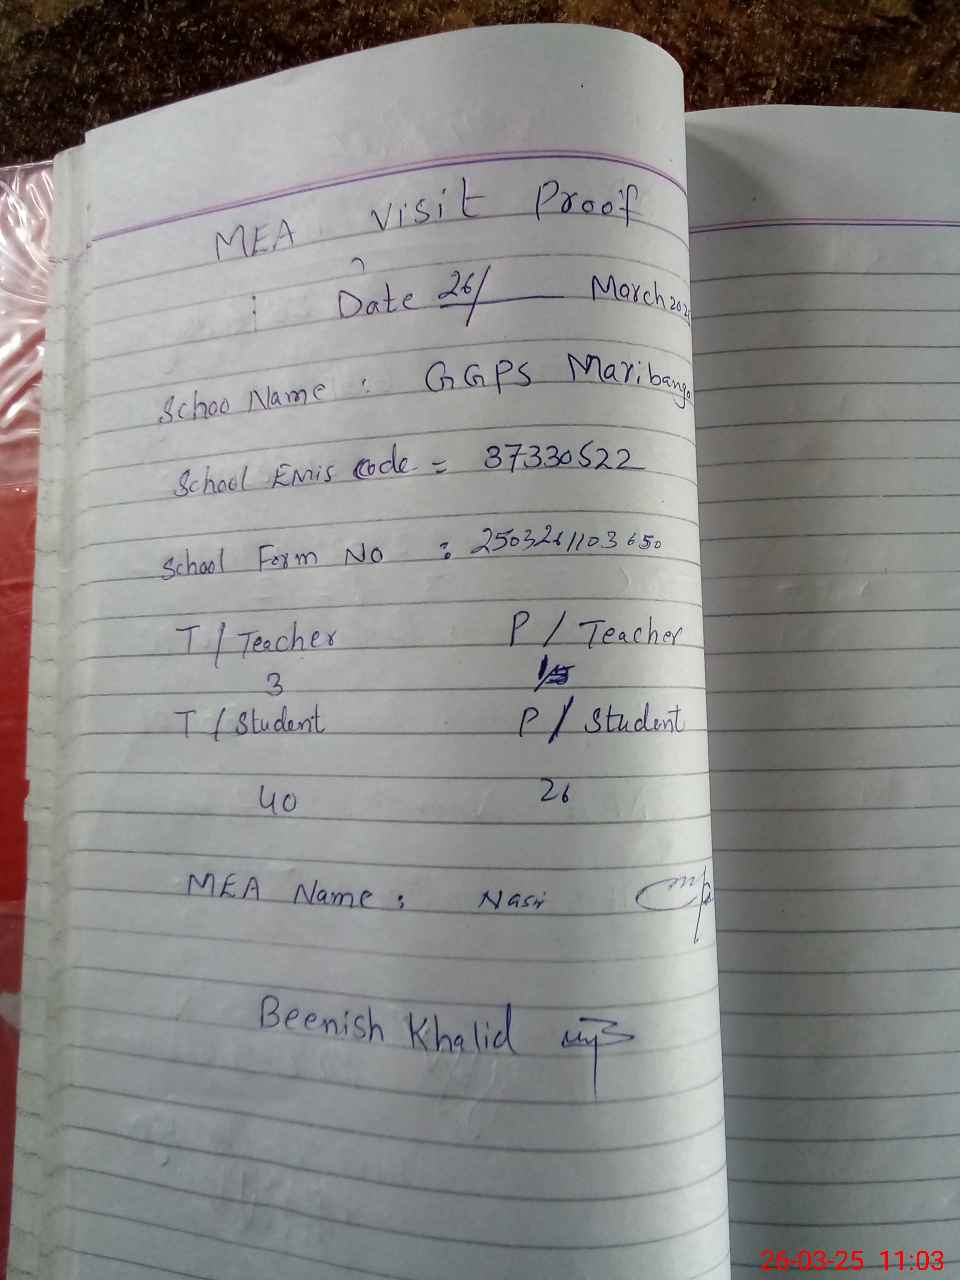 MEA Visit Proof
: Date 26/ March 202
Schoo Name : GGPS Maribanga
School EMIS Code = 37330522
School Form No : 2503261103650
T / Teacher P / Teacher
3
T / Student P / Student
40 26
MEA Name : Nasir
Beenish Khalid
26-03-25 11:03